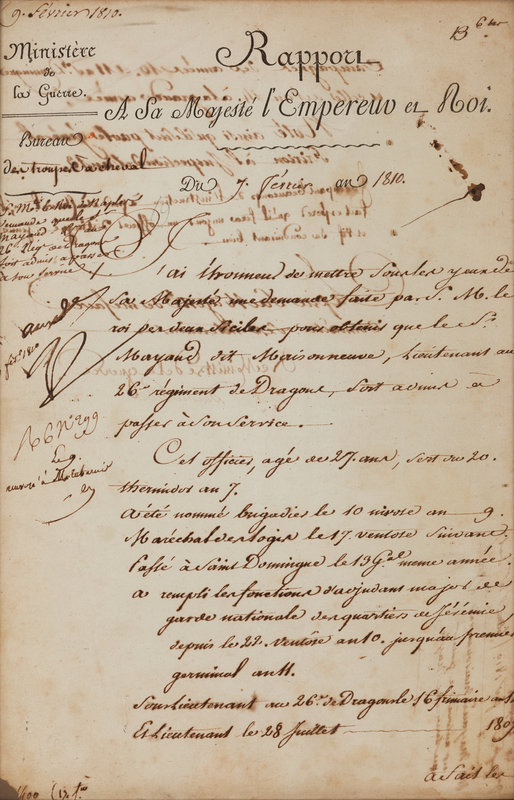 9. Février 1810.
B
Ministère
de
la Guerre.
Bureau
des troupes à cheval
Rapport
A Sa Majesté l'Empereur et Roi.
Du 7. Février an 1810.
S. M. le Roi de Naples
demande que le Sr
Mayaud
26e Regt de Dragons
soit admis à passer
à son service
J'ai l'honneur de mettre sous les yeux de
Sa Majesté une demande faite par S. M. le
roi des deux Siciles, pour obtenir que le Sr.
Mayaud dit Maisonneuve, Lieutenant au
26e régiment de Dragons, soit admis à
passer à son service.
fév. 1810
No 299
renvoyé
Cet officier, agé de 27. ans, sert du 20
thermidor an 7.
A été nommé brigadier le 10 nivose an 9.
Maréchal des logis le 17. ventose suivant.
Passé à Saint Domingue le 13 Gal même année.
a rempli les fonctions d'adjudant major de
garde nationale des quartiers de Jérémie
depuis le 22. ventôse an 10. jusqu'au premier
germinal an 11.
Sous Lieutenant au 26e. de Dragons le 16 frimaire an
Et Lieutenant le 28 Juillet 180
a fait les